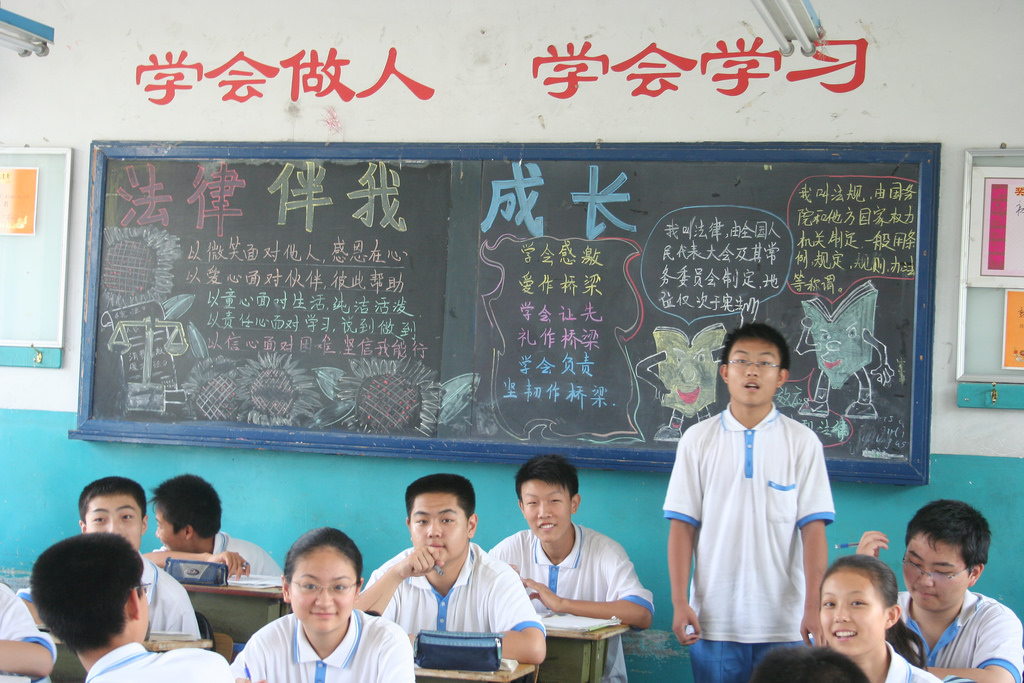 学会做人 学会学习
法律伴我成长
以微笑面对他人,感恩在心
以爱心面对伙伴,彼此帮助
以童心面对生活,纯洁活泼
以责任心面对学习,说到做到
以信心面对困难,坚信我能行
学会感激
爱作桥梁
学会让先
礼作桥梁
学会负责
坚韧作桥梁.
我叫法律,由全国人
民代表大会及其常
务委员会制定,地
位仅次于宪法
我叫法规,由国务
院和地方国家权力
机关制定,一般用条
例,规定,规则,办法
等称谓。